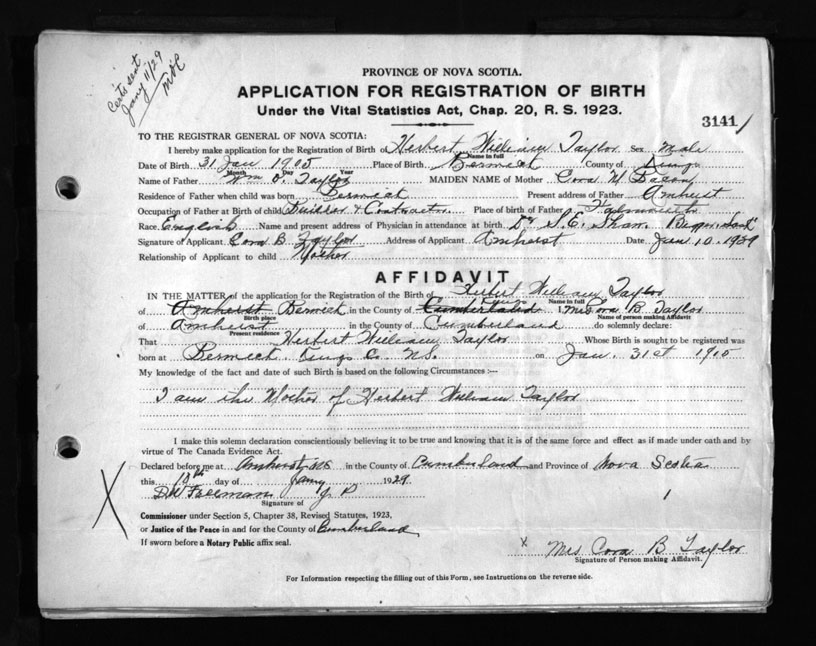 Certs sent
Jany 11/29
PROVINCE OF NOVA SCOTIA.
APPLICATION FOR REGISTRATION OF BIRTH
Under the Vital Statistics Act, Chap. 20, R. S. 1923.
3141
TO THE REGISTRAR GENERAL OF NOVA SCOTIA:
I hereby make application for the Registration of Birth of Herbert William Taylor Sex Male
Name in full
Date of Birth 31 Jan 1905 Place of Birth Berwick County of Kings
Month Day Year
Name of Father Wm O. Taylor MAIDEN NAME of Mother Cora Bacon
Residence of Father when child was born Berwick Present address of Father Amherst
Occupation of Father at Birth of child Builder & Contractor Place of birth of Father Falmouth
Race English Name and present address of Physician in attendance at birth Dr S. E. Shaw
Signature of Applicant Cora B Taylor Address of Applicant Amherst Date Jan 10. 1929
Relationship of Applicant to child Mother
AFFIDAVIT
IN THE MATTER of the application for the Registration of the Birth of Herbert William Taylor
Name in full
of Amherst Berwick in the County of Cumberland Kings I, Mrs Cora B. Taylor
Birth place Name of person making Affidavit
of Amherst in the County of Cumberland do solemnly declare:
Present residence
That Herbert William Taylor Whose Birth is sought to be registered was
born at Berwick Kings Co. NS. on Jan. 31st 1905
My knowledge of the fact and date of such Birth is based on the following Circumstances :—
I am the Mother of Herbert William Taylor
I make this solemn declaration conscientiously believing it to be true and knowing that it is of the same force and effect as if made under oath and by
virtue of The Canada Evidence Act.
Declared before me at Amherst NS in the County of Cumberland and Province of Nova Scotia
this 10th day of Jany 1929.
J P
Signature of
Commissioner under Section 5, Chapter 38, Revised Statutes, 1923,
or Justice of the Peace in and for the County of Cumberland
If sworn before a Notary Public affix seal.
x Mrs Cora B Taylor
Signature of Person making Affidavit.
For Information respecting the filling out of this Form, see Instructions on the reverse side.